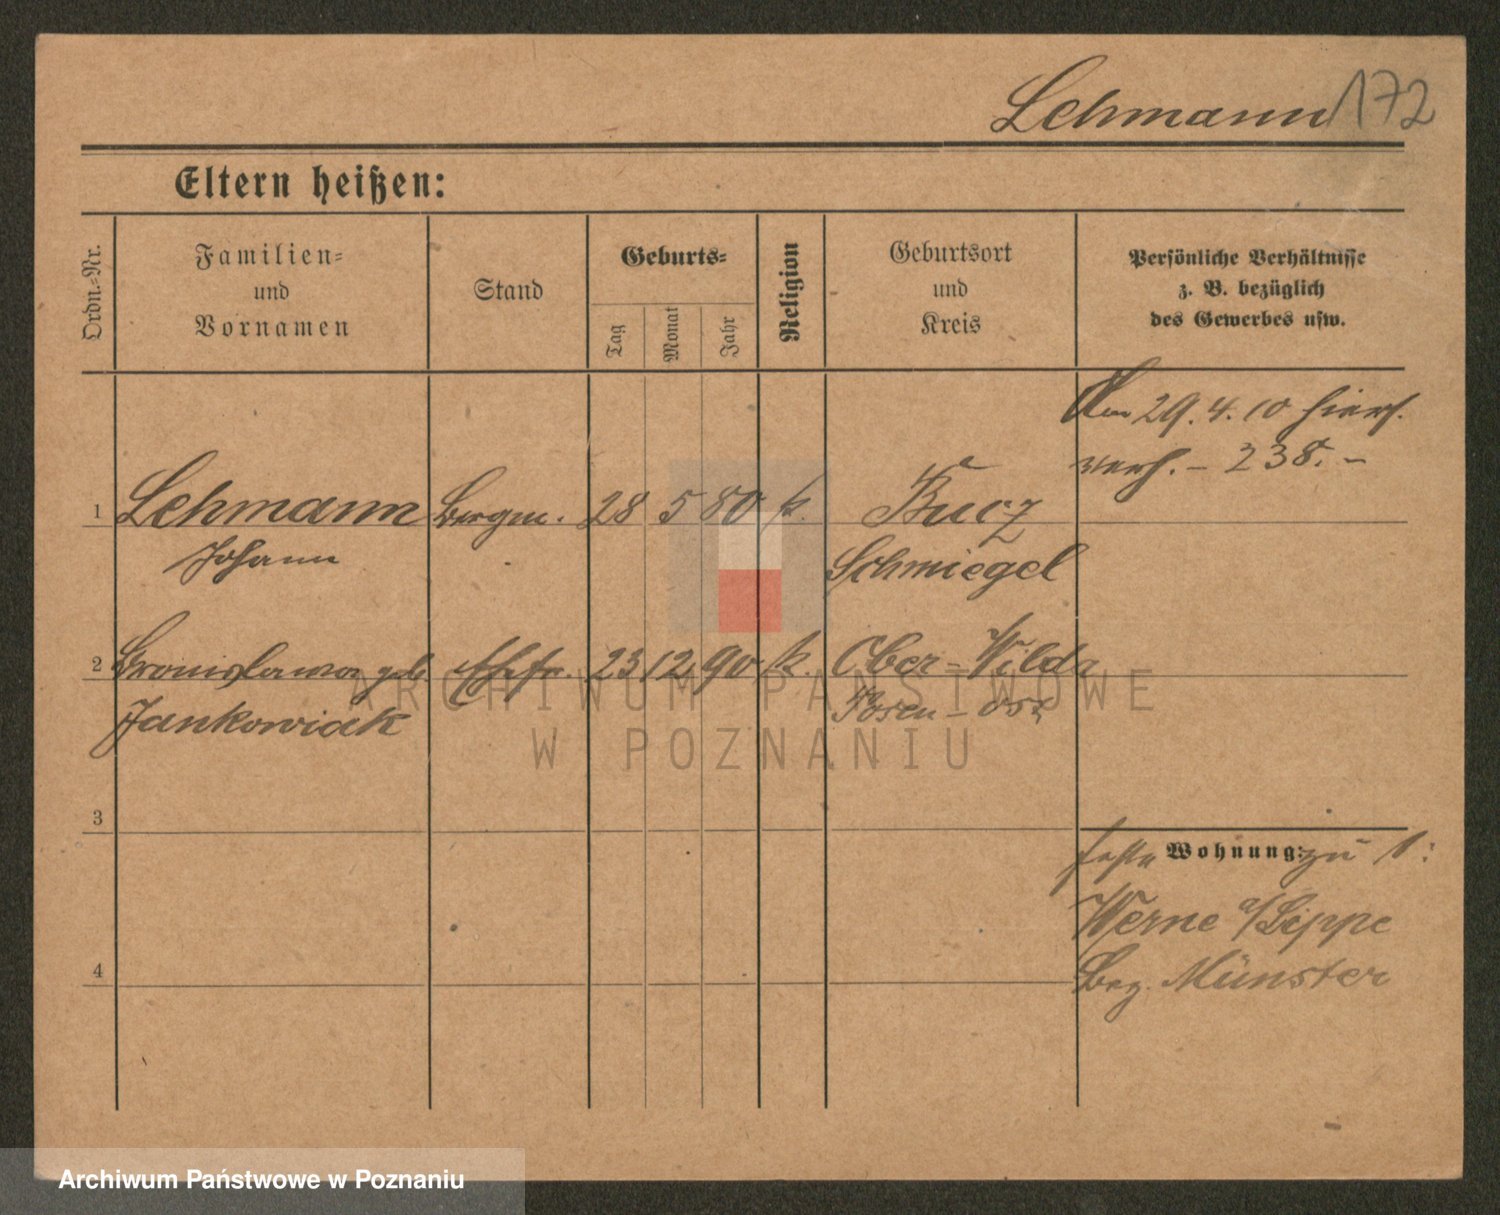 Lehmann 172
Eltern heißen:
Ordn.-Nr.
Familien-
und
Vornamen
Stand
Geburts-
Tag
Monat
Jahr
Religion
Geburtsort
und
Kreis
Persönliche Verhältnisse
z. B. bezüglich
des Gewerbes usw.
Am 29.4.10 hiers.
verh. - 238. -
1 Lehmann Bergm. 28 5 80 k. Bucz
Johann Schmiegel
2 Bronislawa geb. Ehefr. 23 12 90 k. Ober-Wilda
Jankowiak Posen - ost
3
feste Wohnung: zu 1:
Werne a/Lippe
Bez. Münster
4
ARCHIWUM PAŃSTWOWE
W POZNANIU
Archiwum Państwowe w Poznaniu